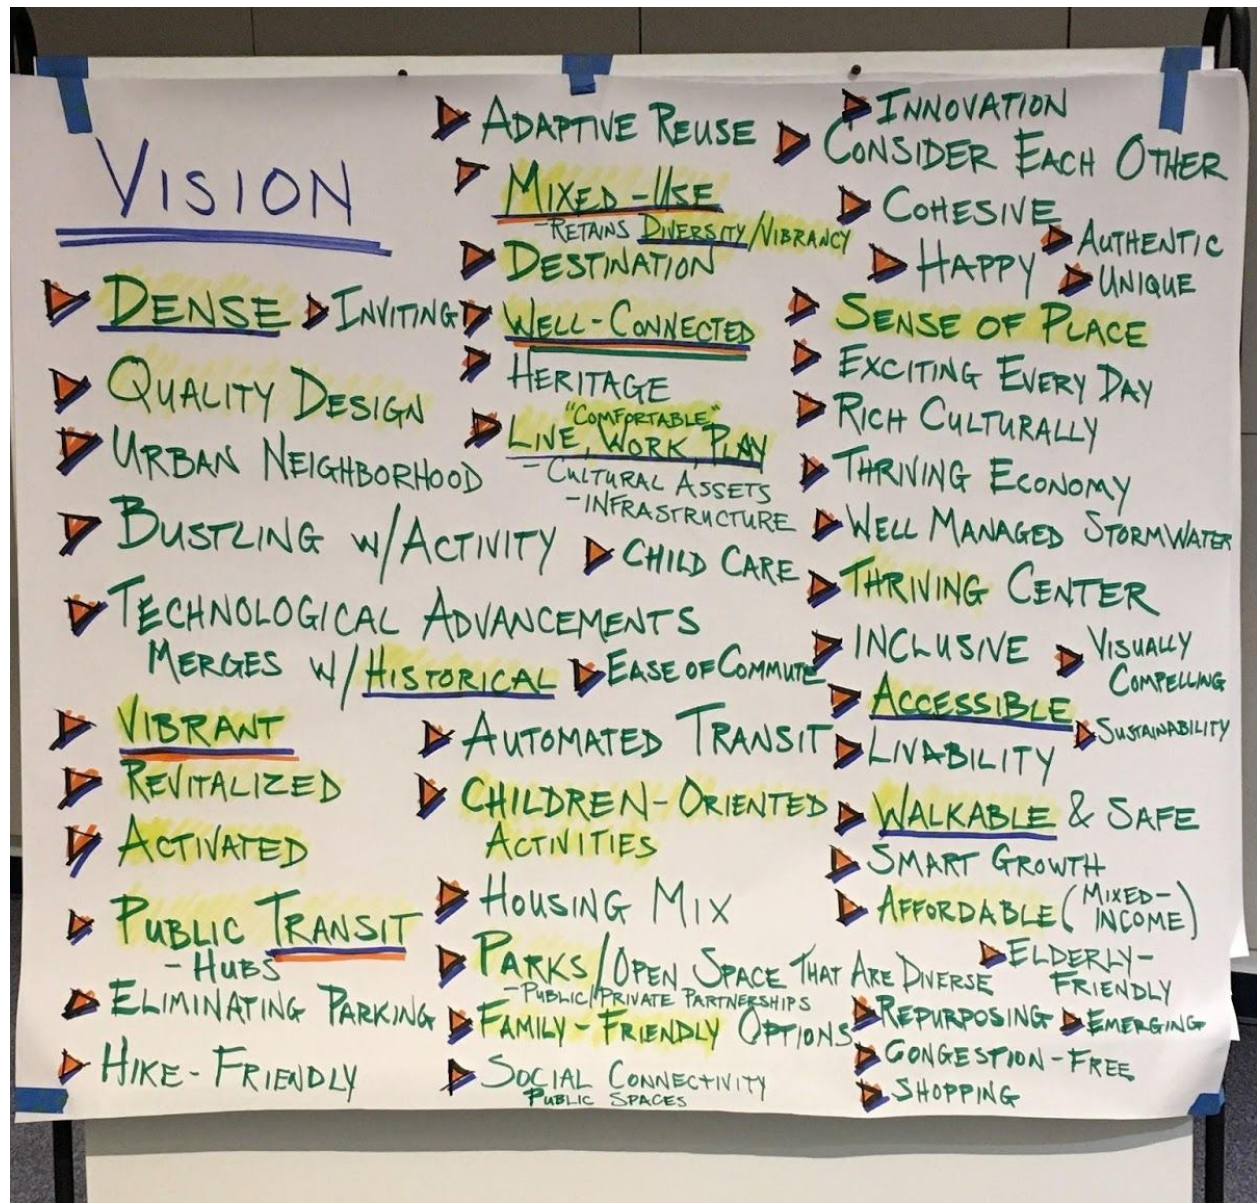 VISION
DENSE
INVITING
QUALITY DESIGN
URBAN NEIGHBORHOOD
BUSTLING W/ACTIVITY
CHILD CARE
TECHNOLOGICAL ADVANCEMENTS
MERGES W/HISTORICAL
EASE OF COMMUTE
VIBRANT
REVITALIZED
ACTIVATED
PUBLIC TRANSIT
- HUBS
ELIMINATING PARKING
HIKE-FRIENDLY
ADAPTIVE REUSE
MIXED-USE
- RETAINS DIVERSITY/VIBRANCY
DESTINATION
WELL-CONNECTED
HERITAGE
"COMFORTABLE"
LIVE, WORK, PLAY
- CULTURAL ASSETS
- INFRASTRUCTURE
AUTOMATED TRANSIT
CHILDREN-ORIENTED
ACTIVITIES
HOUSING MIX
PARKS/OPEN SPACE THAT ARE DIVERSE
- PUBLIC/PRIVATE PARTNERSHIPS
FAMILY-FRIENDLY OPTIONS
SOCIAL CONNECTIVITY
PUBLIC SPACES
INNOVATION
CONSIDER EACH OTHER
COHESIVE
AUTHENTIC
HAPPY
UNIQUE
SENSE OF PLACE
EXCITING EVERY DAY
RICH CULTURALLY
THRIVING ECONOMY
WELL MANAGED STORMWATER
THRIVING CENTER
INCLUSIVE
VISUALLY
COMPELLING
ACCESSIBLE
SUSTAINABILITY
LIVABILITY
WALKABLE & SAFE
SMART GROWTH
AFFORDABLE (MIXED-
INCOME)
ELDERLY-
FRIENDLY
REPURPOSING
EMERGING
CONGESTION-FREE
SHOPPING